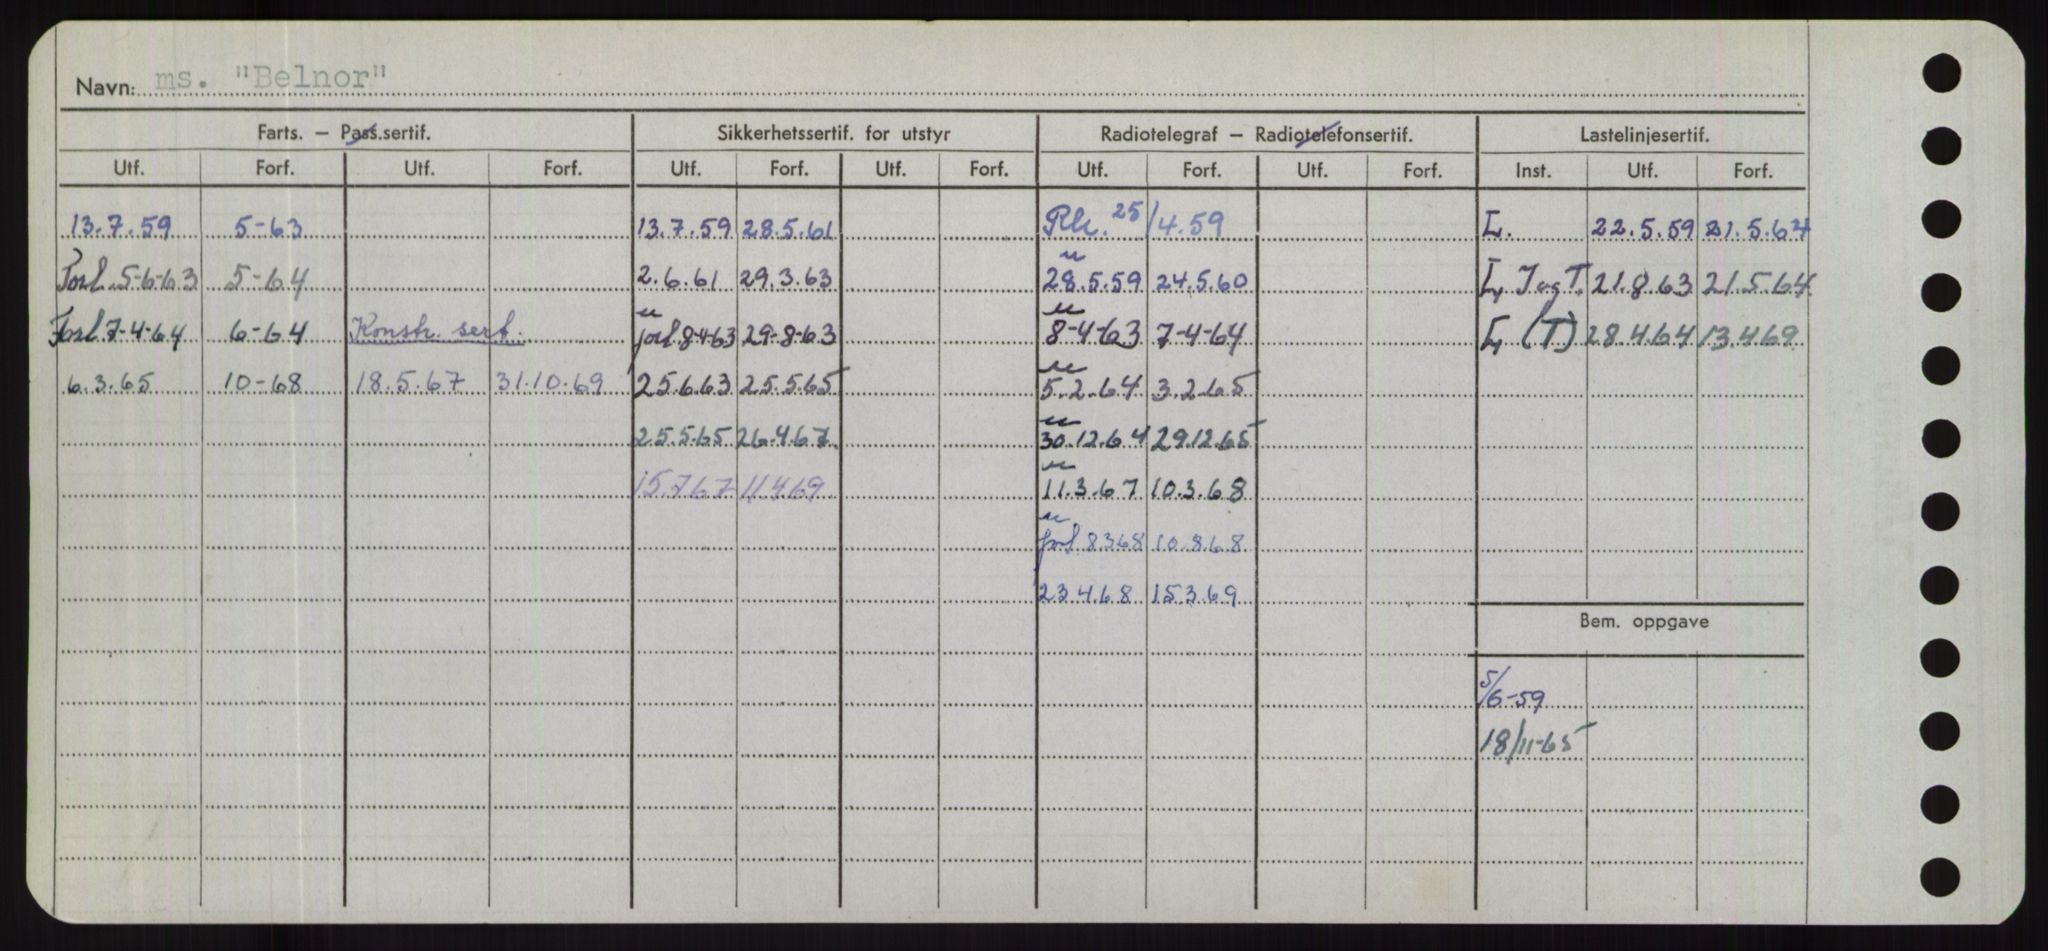 Navn: ms. "Belnor"
Farts. — Pass.sertif. Sikkerhetssertif. for utstyr Radiotelegraf — Radiotelefonsertif. Lastelinjesertif.
Utf. Forf. Utf. Forf. Utf. Forf. Utf. Forf. Utf. Forf. Utf. Forf. Inst. Utf. Forf.
13.7.59 5-63 13.7.59 28.5.61 25/4.59 L. 22.5.59 21.5.64
Forl. 5-6-63 5-64 2.6.61 29.3.63 28.5.59 24.5.60 L, I og T. 21.8.63 21.5.64
Forl 7-4-64 6-64 Konstr. sert. forl 8-4-63 29-8-63 8-4-63 7-4-64 L, (T) 28.4.64 13.4.69
6.3.65 10-68 18.5.67 31.10.69 25.6.63 25.5.65 5.2.64 3.2.65
25.5.65 26.4.67 30.12.64 29.12.65
15.7.67 11.4.69 11.3.67 10.3.68
forl 8.3.68 10.8.68
23.4.68 15.3.69
Bem. oppgave
5/6-59
18/11-65